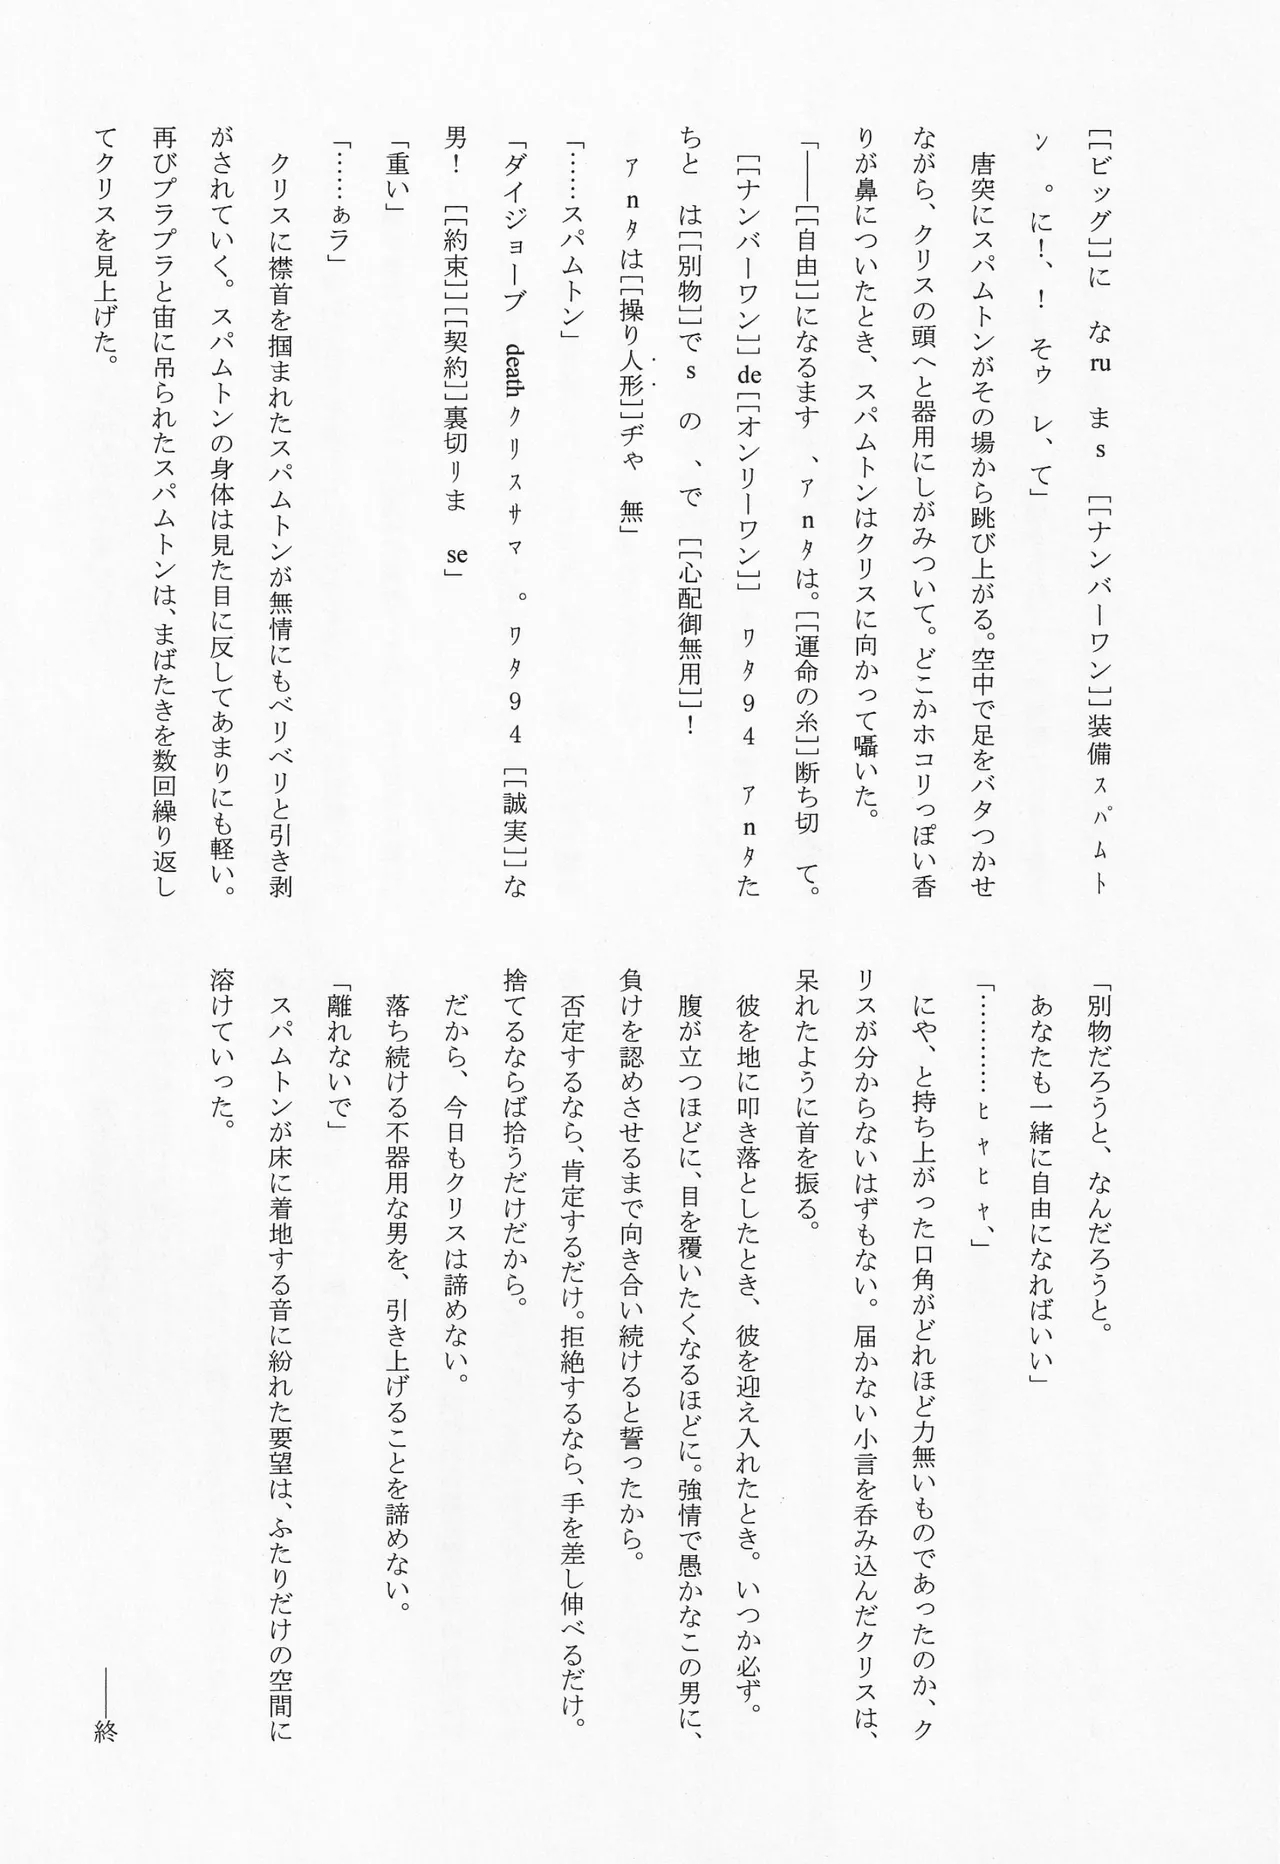 [[ビッグ]]に　なru　まs　[[ナンバーワン]]装備ｽﾊﾟﾑﾄ
ﾝ　。に!、!　そゥ　レ、て」
　唐突にスパムトンがその場から跳び上がる。空中で足をバタつかせ
ながら、クリスの頭へと器用にしがみついて。どこかホコリっぽい香
りが鼻についたとき、スパムトンはクリスに向かって囁いた。
「――[[自由]]になるます　、ｱnﾀは。[[運命の糸]]断ち切　て。
　[[ナンバーワン]]de[[オンリーワン]]　ﾜﾀ94　ｱnﾀた
ちと　は[[別物]]でs　の　、で　[[心配御無用]]！
　ｱnﾀは[[操り人形]]ヂゃ　無」
「……スパムトン」
「ダイジョーブ　deathｸﾘｽｻﾏ　。ﾜﾀ94　[[誠実]]な
男！　[[約束]][[契約]]裏切ﾘま　se」
「重い」
「……ぁラ」
　クリスに襟首を掴まれたスパムトンが無情にもベリベリと引き剥
がされていく。スパムトンの身体は見た目に反してあまりにも軽い。
再びプラプラと宙に吊られたスパムトンは、まばたきを数回繰り返し
てクリスを見上げた。
「別物だろうと、なんだろうと。
　あなたも一緒に自由になればいい」
「…………ﾋｬﾋｬ、」
　にや、と持ち上がった口角がどれほど力無いものであったのか、ク
リスが分からないはずもない。届かない小言を呑み込んだクリスは、
呆れたように首を振る。
　彼を地に叩き落としたとき、彼を迎え入れたとき。いつか必ず。
　腹が立つほどに、目を覆いたくなるほどに。強情で愚かなこの男に、
負けを認めさせるまで向き合い続けると誓ったから。
　否定するなら、肯定するだけ。拒絶するなら、手を差し伸べるだけ。
捨てるならば拾うだけだから。
　だから、今日もクリスは諦めない。
　落ち続ける不器用な男を、引き上げることを諦めない。
「離れないで」
　スパムトンが床に着地する音に紛れた要望は、ふたりだけの空間に
溶けていった。
――終